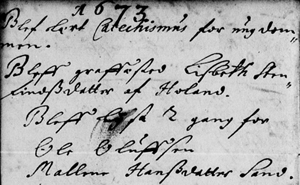 1673
Bleff lært Catechismus for ungdom=
men.
Bleff graffæsted Lisbeth Sten=
findßdatter af Holand.
Bleff liust 2 gang for
Ole Oluffsen
Mallene Hanßdatter Sand.